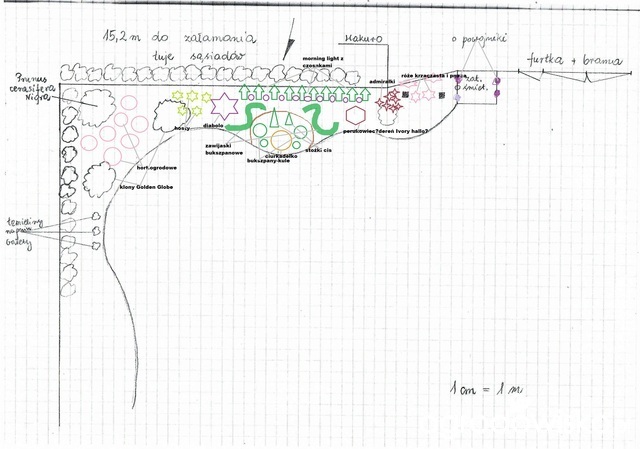 15,2 m do załamania
tuje sąsiadów
Hakuro
o powojniki
furtka + brama
morning light z
czosnkami
Prunus
cerasifera
Nigra
admiralki
róże krzaczaste i pnące
zat.
śmiet.
hosty
diabolo
zawijaski
bukszpanowe
ciurkadełko
bukszpany-kule
stożki cis
perukowiec?dereń Ivory hallo?
hort.ogrodowe
klony Golden Globe
1 cm = 1 m